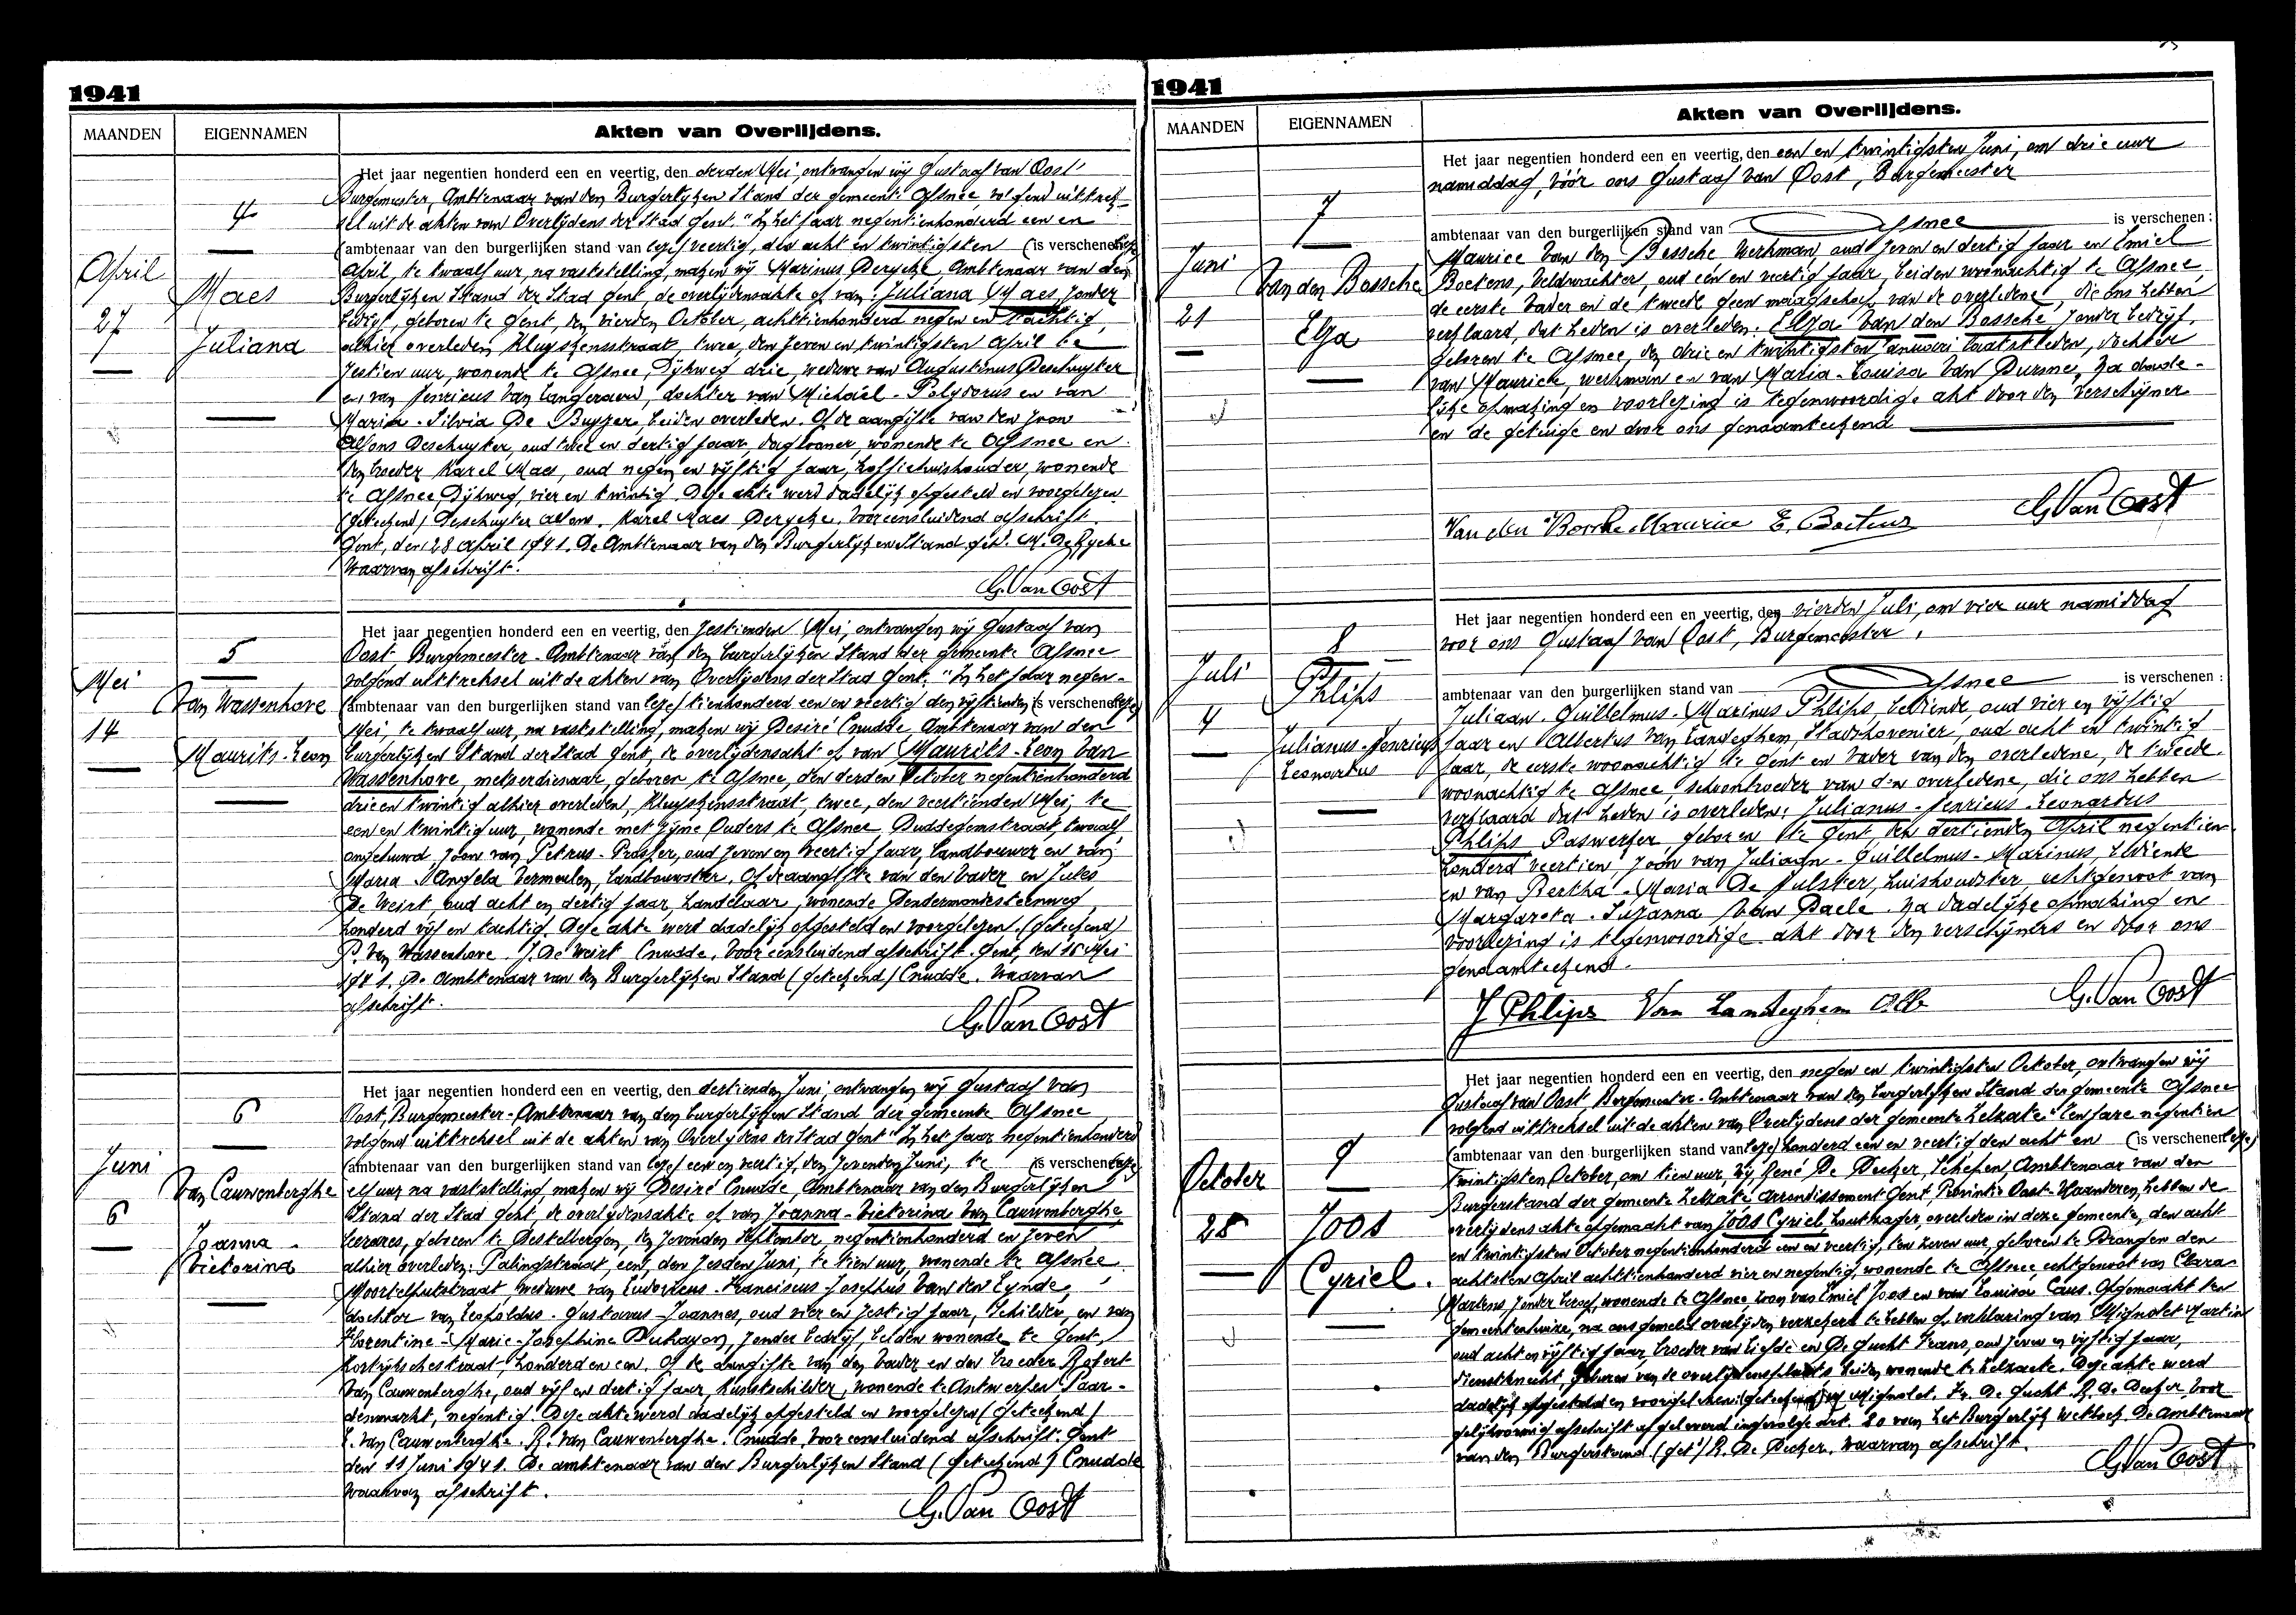 1941
MAANDEN
EIGENNAMEN
Akten van Overlijdens.
4
April
Maes
27
Juliana
Het jaar negentien honderd een en veertig, den derden Mei, ontvangen wij Gustaaf van Oost
Burgemeester, Ambtenaar van den Burgerlijken Stand der gemeente Afsnee, volgend uittrek-
sel uit de akten van Overlijdens der Stad Gent. "In het jaar negentienhonderd een en
(ambtenaar van den burgerlijken stand van leze) veertig, den acht en twintigsten (is verschenen leze)
April, te twaalf uur, na vaststelling, maken wij Marinus Derycke, Ambtenaar van den
Burgerlijken Stand der Stad Gent, de overlijdensakte op van: Juliana Maes zonder
bedrijf, geboren te Gent, den vierden October, achttienhonderd negen en tachtig,
alhier overleden Kluyskensstraat, twee, den zeven en twintigsten April te
zestien uur, wonende te Afsnee Dijkweg drie, weduwe van Augustinus Deschuyter
en van Henricus Van Langeraert, dochter van Michaël-Polydorus en van
Maria-Silvia De Buyzer, beiden overleden. Op de aangifte van den zoon
Alfons Deschuyter, oud twee en dertig jaar, daglooner, wonende te Afsnee en
den broeder Karel Maes, oud negen en vijftig jaar, koffiehuishouder, wonende
te Afsnee, Dijkweg, vier en twintig. Deze akte werd dadelijk opgesteld en voorgelezen
(geteekend) Deschuyter Alfons. Karel Maes Derycke. Voor eensluidend afschrift.
Gent, den 28 April 1941. De Ambtenaar van den Burgerlijken Stand get. M. De Rycke
Waarvan afschrift.
G. Van Oost
5
Mei
Van Wassenhove
14
Maurits-Leon
Het jaar negentien honderd een en veertig, den zestienden Mei, ontvangen wij Gustaaf van
Oost, Burgemeester-Ambtenaar van den burgerlijken Stand der gemeente Afsnee
volgend uittreksel uit de akten van Overlijdens der Stad Gent. "In het jaar negen-
(ambtenaar van den burgerlijken stand van leze) tienhonderd een en veertig den vijftienden (is verschenen leze)
Mei, te twaalf uur, na vaststelling, maken wij Desiré Cnudde, Ambtenaar van den
burgerlijken Stand der Stad Gent, de overlijdensakt op van Maurits-Leon Van
Wassenhove, metserdienaar, geboren te Afsnee, den derden October negentienhonderd
drie en twintig alhier overleden, Kluyskensstraat, twee, den veertienden Mei, te
een en twintig uur, wonende met zijne Ouders te Afsnee, Duddegemstraat, twaalf
ongehuwd, zoon van Petrus-Prosper, oud zeven en veertig jaar, landbouwer en van
Maria Angela Vermeulen, landbouwster. Op de aangifte van den Vader en Jules
De Weirt, oud acht en dertig jaar, handelaar, wonende Dendermondesteenweg
honderd vijf en tachtig. Deze akte werd dadelijk opgesteld en voorgelezen. (geteekend)
P. Van Wassenhove. J. De Weirt Cnudde. Voor eensluidend afschrift. Gent, den 16 Mei
1941. De Ambtenaar van den Burgerlijken Stand (geteekend) Cnudde. Waarvan
afschrift.
G. Van Oost
6
Juni
Van Cauwenberghe
6
Joanna
Victorina
Het jaar negentien honderd een en veertig, den dertienden Juni, ontvangen wij Gustaaf van
Oost, Burgemeester-Ambtenaar van den burgerlijken Stand der gemeente Afsnee
volgend uittreksel uit de akten van Overlijdens der Stad Gent "In het jaar negentienhonderd
(ambtenaar van den burgerlijken stand van leze) een en veertig, den zevenden Juni, te (is verschenen leze)
elf uur na vaststelling, maken wij Desiré Cnudde, Ambtenaar van den Burgerlijken
Stand der Stad Gent, de overlijdensakte op van Joanna-Victorina Van Cauwenberghe,
leerares, geboren te Destelbergen, den zevenden September negentienhonderd en zeven
alhier overleden: Palingstraat, een, den zesden Juni, te tien uur, wonende te Afsnee
Moortelputstraat, weduwe van Ludovicus-Franciscus Josephus Van den Eynde,
dochter van Leopoldus-Gustavus-Joannes, oud vier en zestig jaar, Schilder, en van
Florentine-Marie-Josephine Duhayon, zonder bedrijf, beiden wonende te Gent,
Kortrijkschestraat, honderd en een. Op de aangifte van den Vader en den broeder Robert
Van Cauwenberghe, oud vijf en dertig jaar, kunstschilder, wonende te Antwerpen Paar-
denmarkt, negentig. Deze akte werd dadelijk opgesteld en voorgelezen (geteekend)
L. Van Cauwenberghe. R. Van Cauwenberghe. Cnudde. Voor eensluidend afschrift. Gent
den 11 Juni 1941. De ambtenaar van den Burgerlijken Stand (geteekend) Cnudde
Waarvan afschrift.
G. Van Oost
1941
MAANDEN
EIGENNAMEN
Akten van Overlijdens.
7
Juni
Van den Bossche
21
Elza
Het jaar negentien honderd een en veertig, den een en twintigsten Juni, om drie uur
namiddag, vóór ons Gustaaf van Oost, Burgemeester
ambtenaar van den burgerlijken stand van Afsnee is verschenen:
Maurice Van den Bossche werkman, oud zeven en dertig jaar en Emiel
Boetens, Veldwachter, oud een en veertig jaar, beiden woonachtig te Afsnee
de eerste Vader en de tweede geen maagschap van de overledene, die ons hebben
verklaard, dat heden is overleden. Elza Van den Bossche, zonder bedrijf,
geboren te Afsnee, den drie en twintigsten Januari laatstleden, dochter
van Maurice, werkman en van Maria-Louisa Van Durme, na dade-
lijke opmaking en voorlezing is tegenwoordige akt door den Verschijner
en de getuige en door ons genaamteekend
Van den Bossche Maurice E. Boetens
G. Van Oost
8
Juli
Phlips
4
Julianus-Henricus
Leonardus
Het jaar negentien honderd een en veertig, den vierden Juli, om vier uur namiddag
voor ons Gustaaf van Oost, Burgemeester,
ambtenaar van den burgerlijken stand van Afsnee is verschenen:
Juliaan-Guillelmus-Marinus Phlips, bediende, oud vier en vijftig
jaar en Albertus Van Landeghem, Stadshovenier, oud acht en twintig
jaar, de eerste woonachtig te Gent en Vader van den overledene, de tweede
woonachtig te Afsnee, schoonbroeder van den overledene, die ons hebben
verklaard dat heden is overleden: Julianus-Henricus-Leonardus
Phlips Paswerker, geboren te Gent, den dertienden April negentien-
honderd veertien, zoon van Juliaan-Guillelmus-Marinus, bediende
en van Bertha-Maria De Hulster, huishoudster, echtgenoot van
Margareta-Suzanna Van Daele. Na dadelijke opmaking en
voorlezing is tegenwoordige akt door den verschijners en door ons
genaamteekend.
J Phlips Van Landeghem Alb
G. Van Oost
9
October
28
Joos
Cyriel.
Het jaar negentien honderd een en veertig, den negen en twintigsten October, ontvangen wij
Gustaaf van Oost Burgemeester-Ambtenaar van den burgerlijken Stand der gemeente Afsnee
volgend uittreksel uit de akten van Overlijdens der gemeente Zelzate: "Ten jare negentien
(ambtenaar van den burgerlijken stand van leze) honderd een en veertig den acht en (is verschenen leze)
twintigsten October, om tien uur, Wij René De Decker, Schepen, Ambtenaar van den
Burgerstand der gemeente Zelzate arrondissement Gent Provintie Oost-Vlaanderen, hebben de
overlijdensakte opgemaakt van Joos Cyriel houtzager, overleden in deze gemeente, den acht
en twintigsten October negentienhonderd een en veertig, ten zeven uur, geboren te Drongen den
achtsten April achttienhonderd vier en negentig, wonende te Afsnee, echtgenoot van Clara
Martens zonder beroep, wonende te Afsnee zoon van Emiel Joos en van Louisa Caus. Opgemaakt ten
gemeentenhuize, na ons gemeld overlijden verzekerd te hebben op verklaring van Mignolet Martin
oud acht en vijftig jaar, broeder van liefde en De Gucht Frans, oud zeven en vijftig jaar,
dienstknecht, geburen van de overlijdensplaats beiden wonende te Zelzaete. Deze akte werd
dadelijk opgesteld en voorgelezen (geteekend) M Mignolet. Fr. De Gucht. R. De Decker. Voor
gelijkvormig afschrift afgeleverd ingevolge art. 80 van het Burgerlijk Wetboek. De Ambtenaar
van den Burgerstand (get.) R. De Decker. Waarvan afschrift.
G. Van Oost